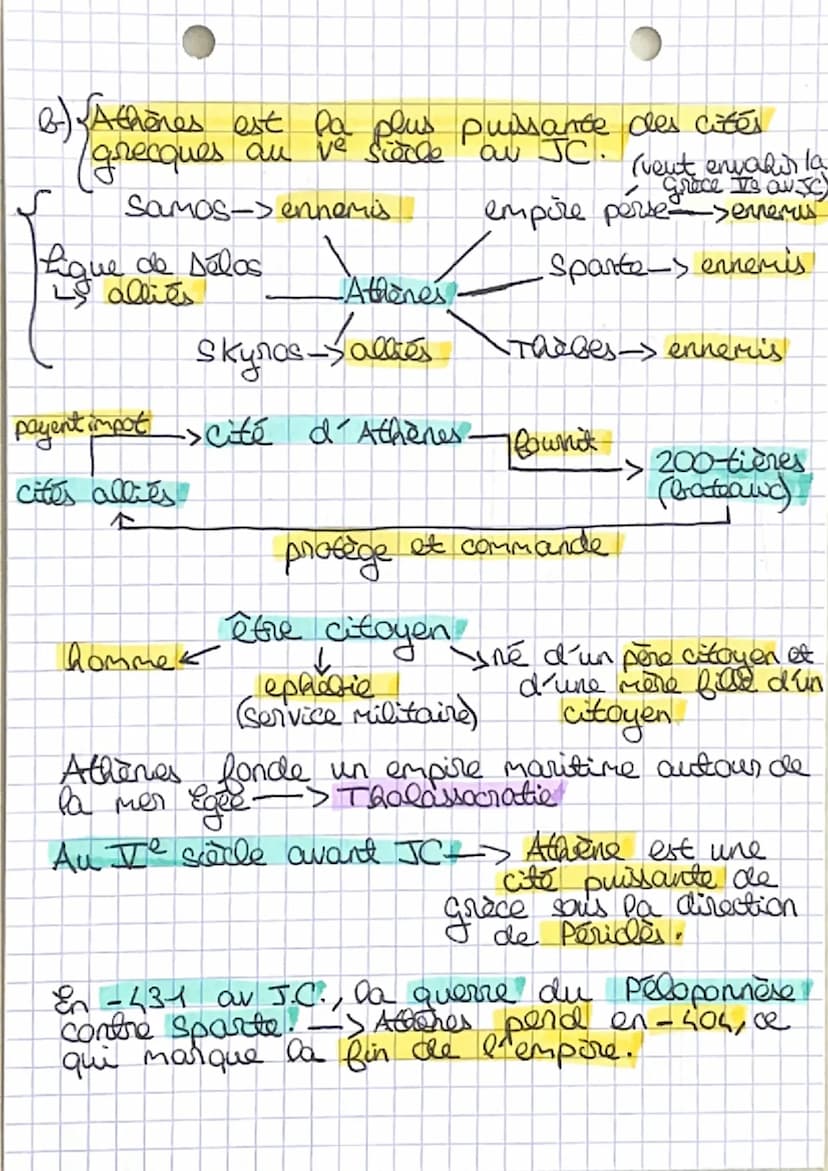 b-) Athènes est la plus puissante des cités
grecques au Ve siècle av JC.
(veut envahir la
Grèce Ve av JC)
Samos -> ennemis
empire perse -> ennemis
Ligue de Délos
↳ alliés
Athènes
Sparte -> ennemis
Skyros -> alliés
Thèbes -> ennemis
payent impot
-> cité d'Athènes
fournit
-> 200 tières
(bateaux)
cités alliés
protège et commande
être citoyen
homme
ephébie
(service militaire)
né d'un père citoyen et
d'une mère fille d'un
citoyen
Athènes fonde un empire maritime autour de
la mer Egée -> Thalassocratie
Au Ve siècle avant JC -> Athène est une
cité puissante de
Grèce sous la direction
de Périclès.
En -431 av J.C., la guerre du Péloponnèse
contre Sparte. -> Athènes perd en -404, ce
qui marque la fin de l'empire.